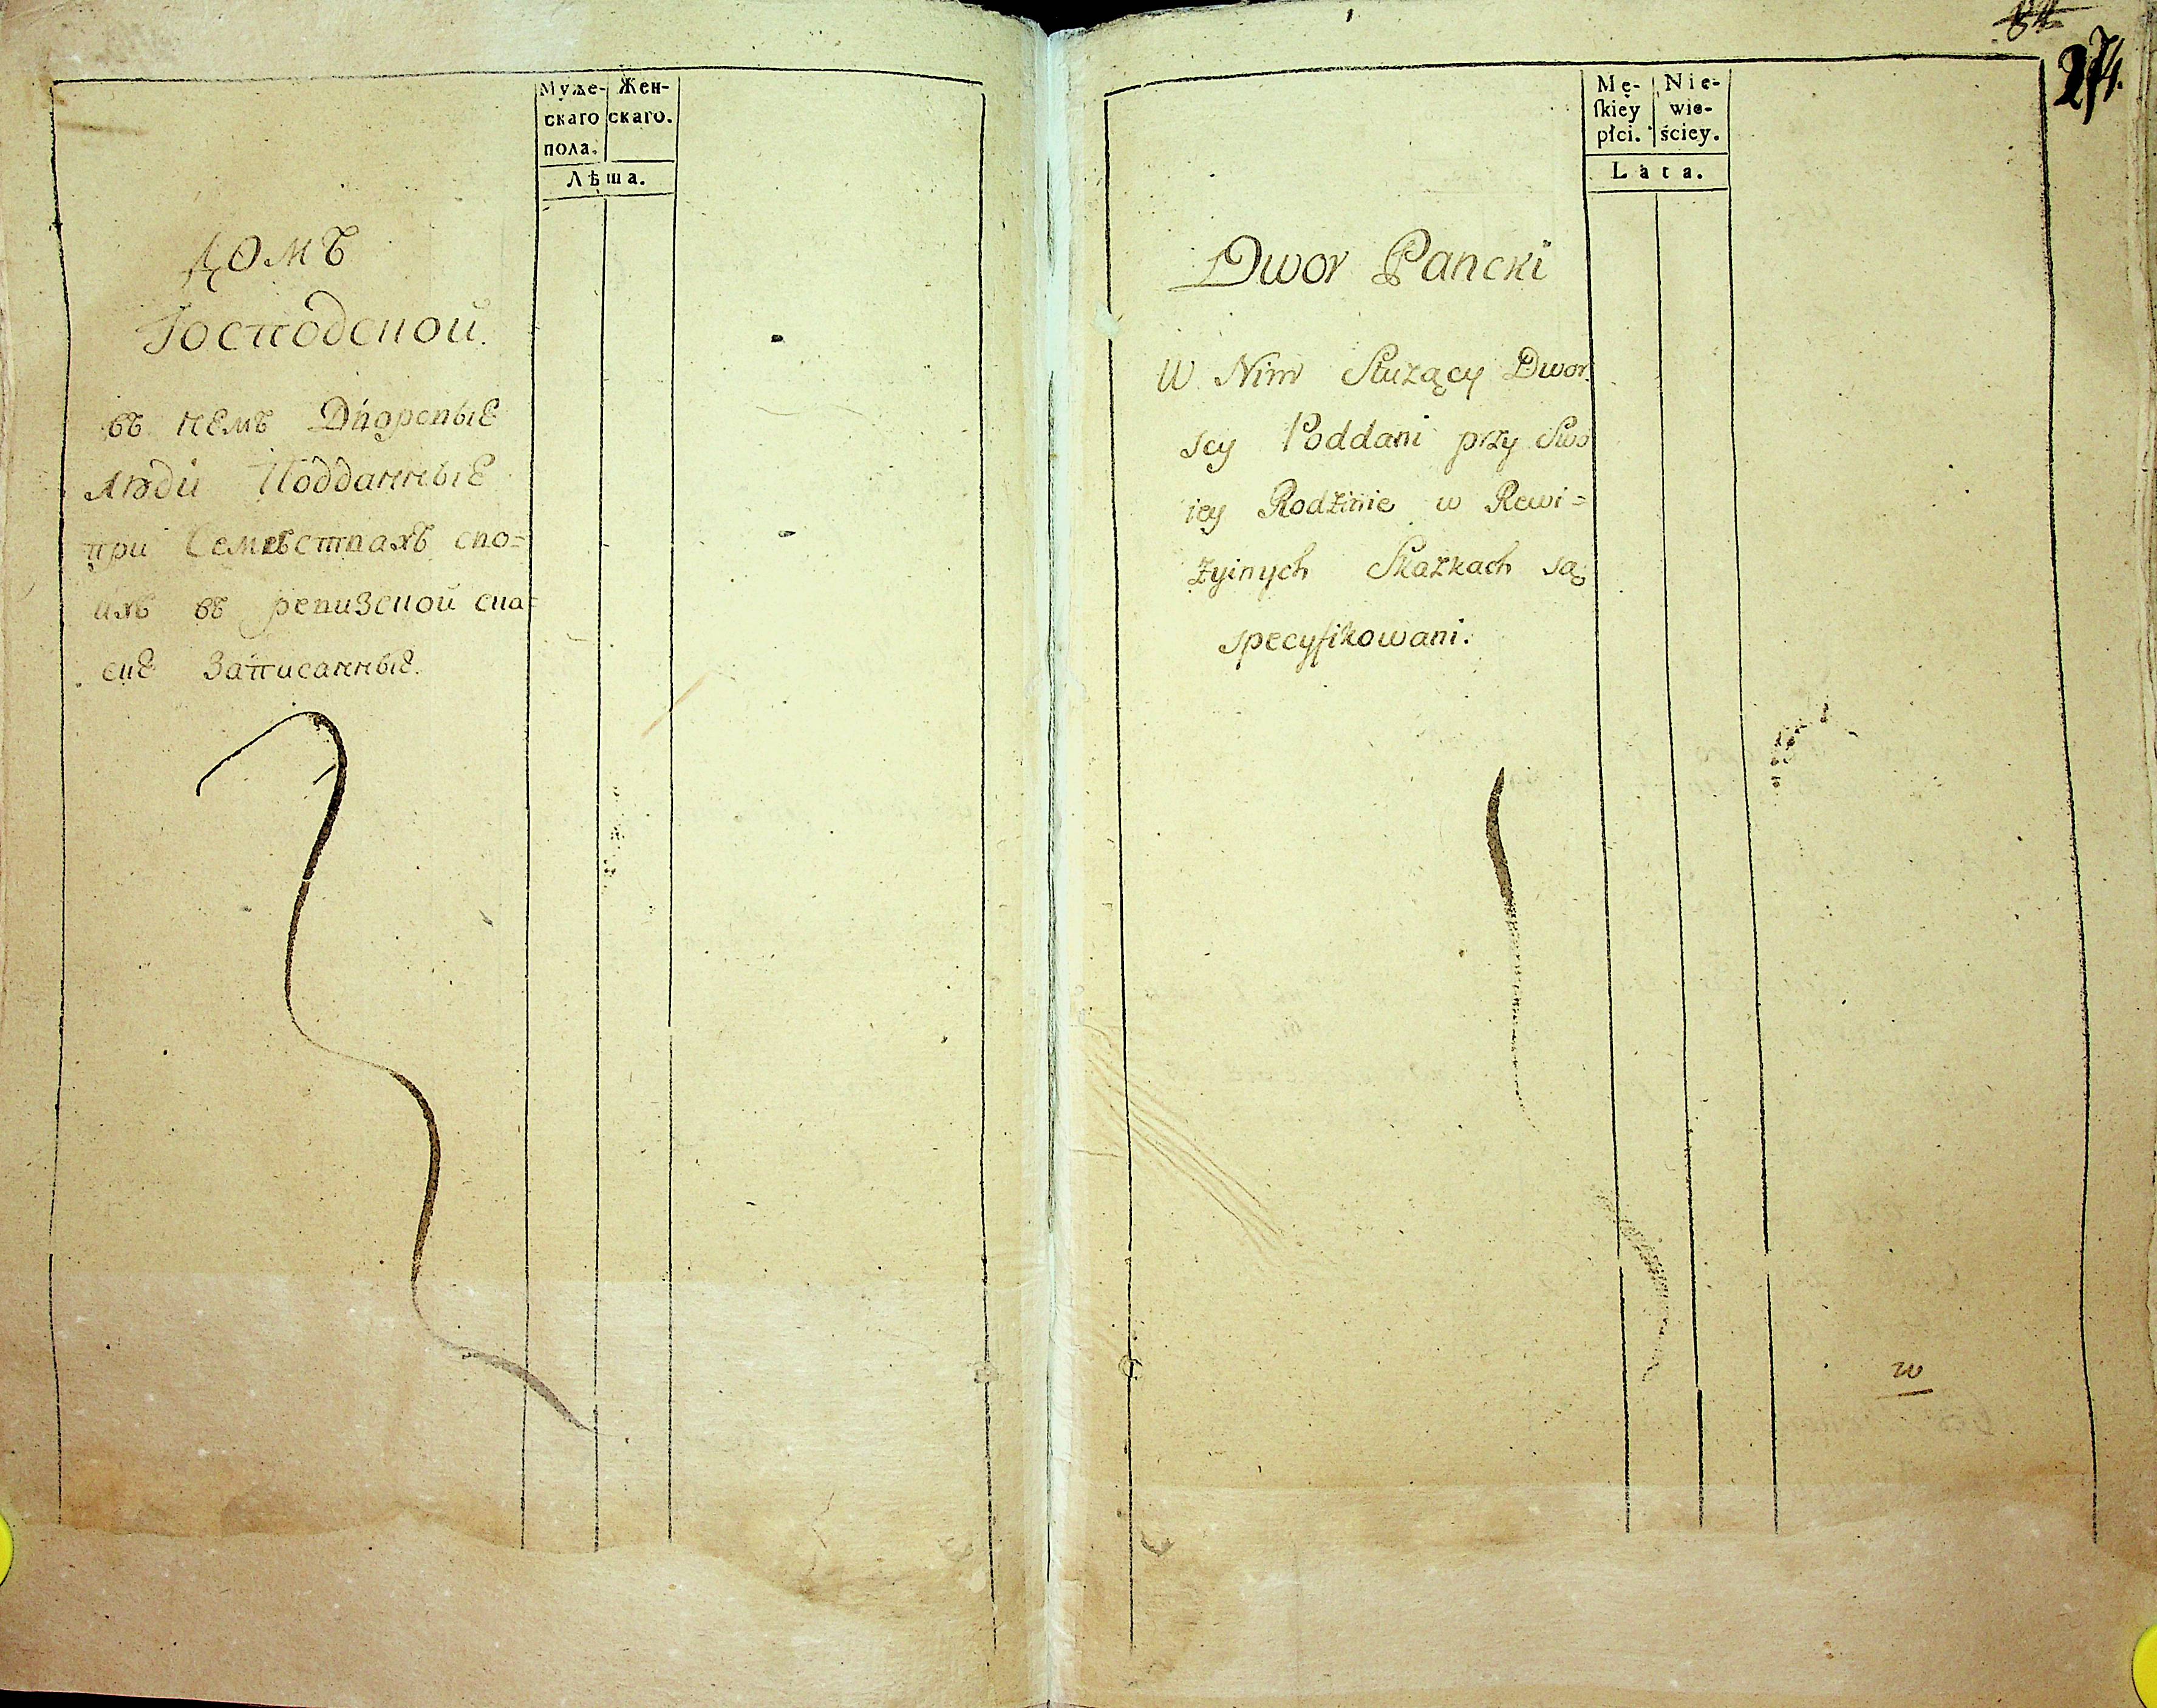 Муже- Жен-
скаго скаго.
пола.
Лѣта.
Домъ
Господской.
въ немъ Дворовые
люди Подданные
при Семействахъ сво=
ихъ въ ревизской ска=
ске Записанные.
84
274.
Mę- Nie-
ſkiey wie-
płci. ściey.
Lata.
Dwor Pancki
W Nim Służący Dwor
scy Poddani przy Swo
iey Rodzinie w Rewi=
zyinych Skazkach są
specyfikowani.
w